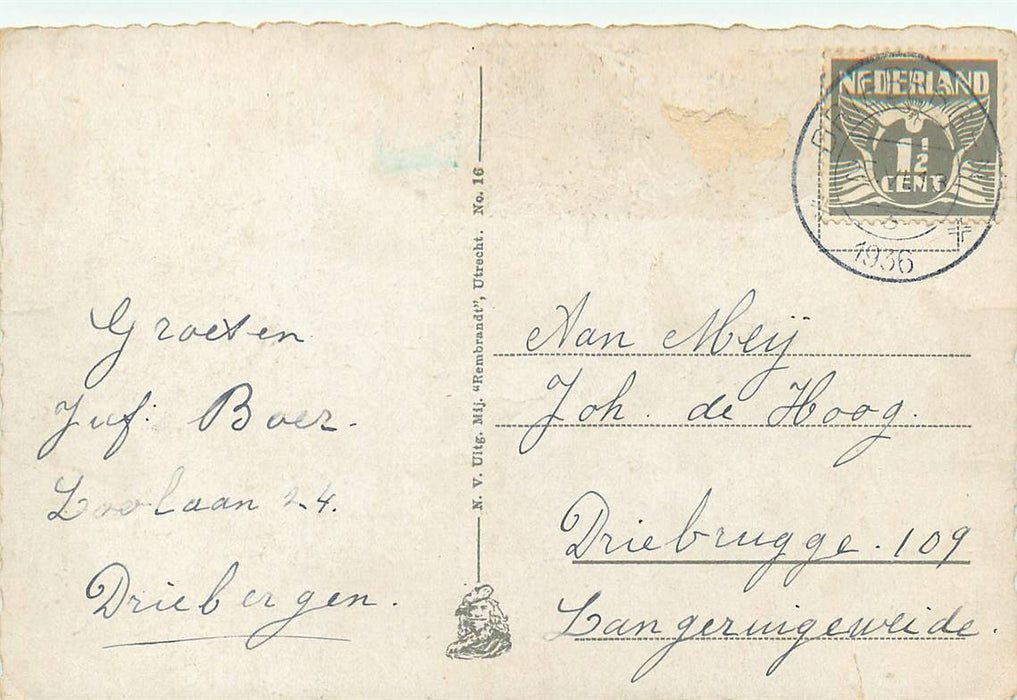 Groeten
Juf. Boer.
Loolaan 24.
Driebergen.
N. V. Uitg. Mij. "Rembrandt", Utrecht. No. 16
NEDERLAND
1½
CENT
1936
Aan Meij
Joh. de Hoog.
Driebrugge. 109
Langeruigeweide.